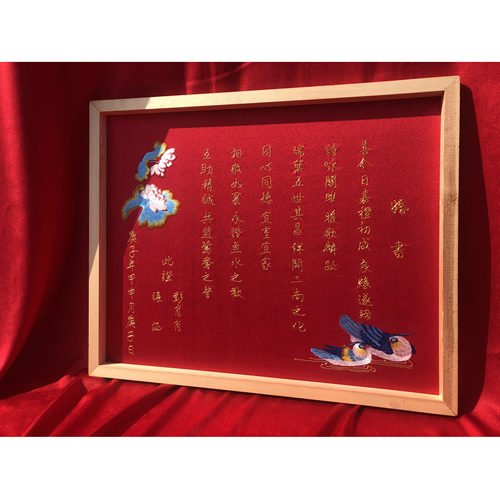 婚書
喜今日嘉禮初成 良緣遂締
詩咏關雎 雅歌麟趾
瑞葉五世其昌 祥開二南之化
同心同德 宜室宜家
相敬如賓 永諧魚水之歡
互助精誠 共盟鴛鴦之誓
此證
彭
張
庚子年甲申月庚子日